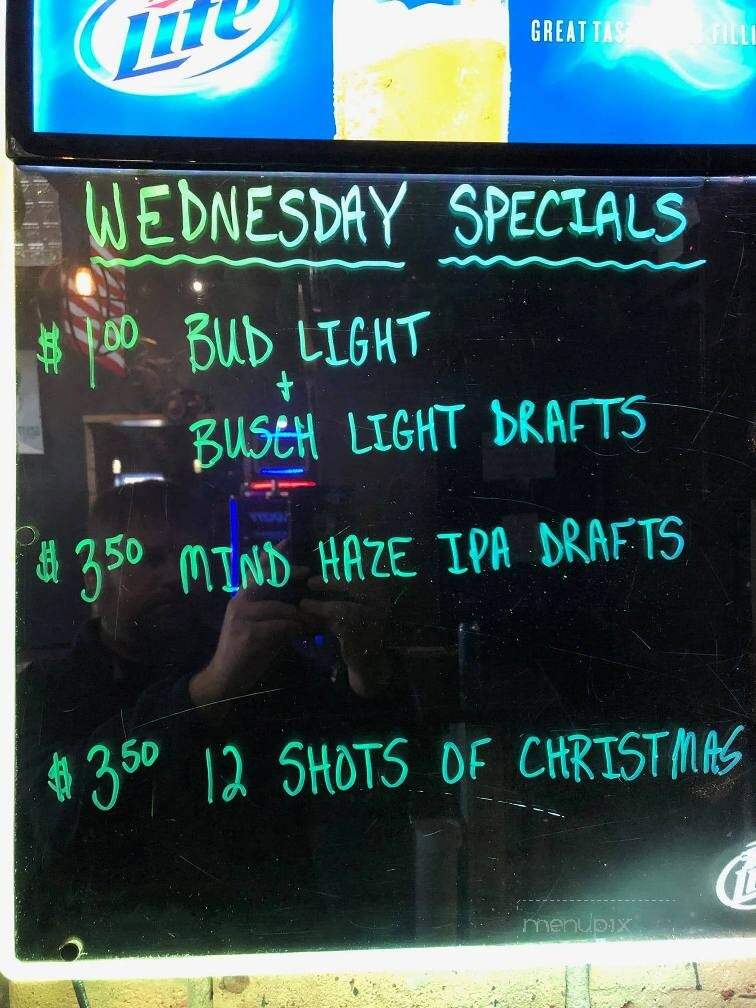 Lite
GREAT TAS FILLI
WEDNESDAY SPECIALS
$ 1.00 BUD LIGHT
+
BUSCH LIGHT DRAFTS
$ 3.50 MIND HAZE IPA DRAFTS
$ 3.50 12 SHOTS OF CHRISTMAS
menupix